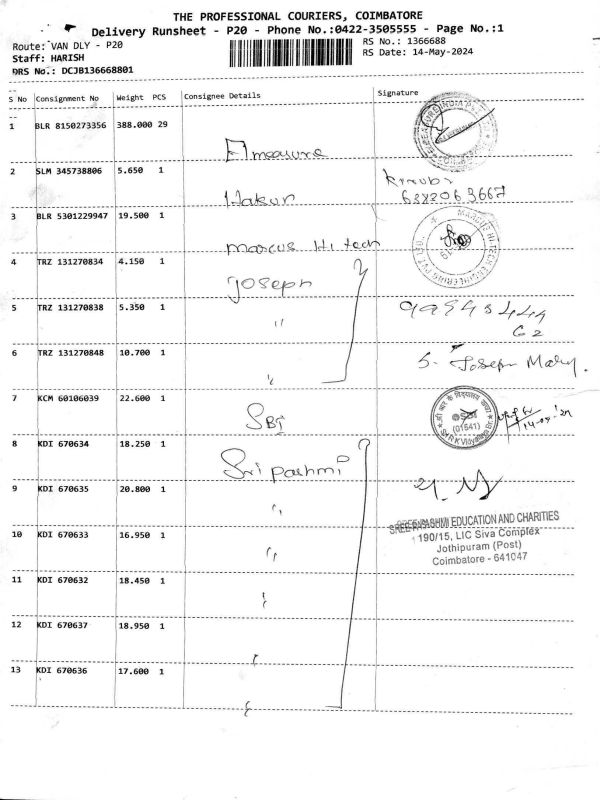 THE PROFESSIONAL COURIERS, COIMBATORE
Delivery Runsheet - P20 - Phone No.:0422-3505555 - Page No.:1
Route: VAN DLY - P20
RS No.: 1366688
Staff: HARISH
RS Date: 14-May-2024
DRS No.: DCJB136668801
S No Consignment No Weight PCS Consignee Details Signature
1 BLR 8150273356 388.000 29
Elmeasure
2 SLM 345738806 5.650 1
Hakun
6382063667
3 BLR 5301229947 19.500 1
Marcus Hi tech
MARCUS HI-TECH ENGINEERING PVT
4 TRZ 131270834 4.150 1
Joseph
5 TRZ 131270838 5.350 1
"
6 TRZ 131270848 10.700 1
S. Joseph Mary.
"
7 KCM 60106039 22.600 1
SBI
SBI
(01641)
SRKVidyalaya Br.
8 KDI 670634 18.250 1
Sri pashmi
9 KDI 670635 20.800 1
"
EDUCATION AND CHARITIES
190/15, LIC Siva Complex
Jothipuram (Post)
Coimbatore - 641047
10 KDI 670633 16.950 1
"
11 KDI 670632 18.450 1
"
12 KDI 670637 18.950 1
"
13 KDI 670636 17.600 1
"